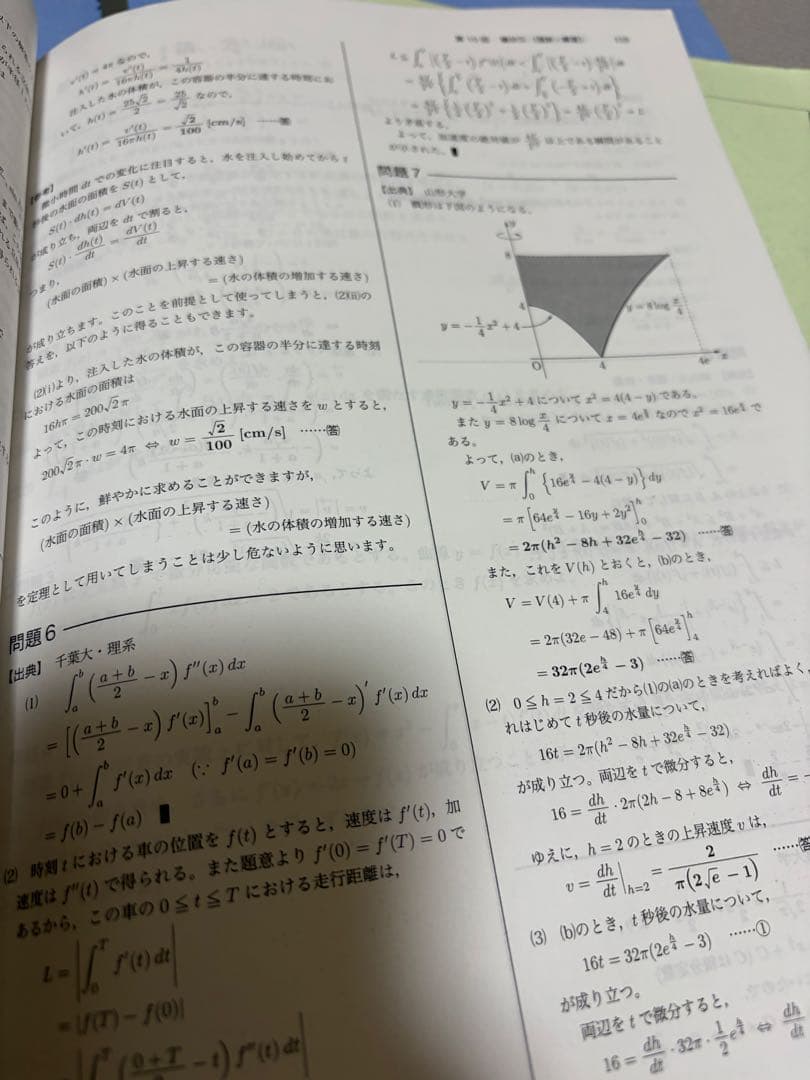 v'(t) = 4π なので,
h'(t) = v'(t)/16πh(t) = 1/4h(t)
注入した水の体積が, この容器の半分に達する時刻にお
いて, h(t) = 25√2/2 = 25/√2 なので,
h'(t) = v'(t)/16πh(t) = √2/100 [cm/s] ――答
【参考】
微小時間 dt での変化に注目すると, 水を注入し始めてから t
秒後の水面の面積を S(t) として,
S(t)・dh(t) = dV(t)
が成り立ち, 両辺を dt で割ると,
S(t)・dh(t)/dt = dV(t)/dt
つまり,
(水面の面積) × (水面の上昇する速さ)
= (水の体積の増加する速さ)
が成り立ちます。このことを前提として使ってしまうと, (2)(ii)の
答えを, 以下のように得ることもできます。
(2)(i)より, 注入した水の体積が, この容器の半分に達する時刻
における水面の面積は
16hπ = 200√2π
よって, この時刻における水面の上昇する速さを w とすると,
200√2π・w = 4π ⇔ w = √2/100 [cm/s] ……答
このように, 鮮やかに求めることができますが,
(水面の面積) × (水面の上昇する速さ)
= (水の体積の増加する速さ)
を定理として用いてしまうことは少し危ないように思います。
問題6
【出典】 千葉大・理系
(1) ∫_a^b ((a+b)/2 − x) f''(x) dx
= [((a+b)/2 − x) f'(x)]_a^b − ∫_a^b ((a+b)/2 − x)' f'(x) dx
= 0 + ∫_a^b f'(x) dx (∵ f'(a) = f'(b) = 0)
= f(b) − f(a) ∎
(2) 時刻 t における車の位置を f(t) とすると, 速度は f'(t), 加
速度は f''(t) で得られる。また題意より f'(0) = f'(T) = 0 で
あるから, この車の 0 ≦ t ≦ T における走行距離は,
L = |∫_0^T f'(t) dt|
= |f(T) − f(0)|
|∫^T ((0+T)/2 − t) f''(t) dt|
より矛盾する。
よって, 加速度の絶対値が 以上である瞬間があること
が示された。∎
問題7
【出典】 山形大学
(1) 概形は下図のようになる。
y
8
4
y = −1/4 x² + 4
y = 8 log x/4
O
4
4e
x
y = −1/4 x² + 4 について x² = 4(4 − y) である。
また y = 8 log x/4 について x = 4e^(y/8) なので x² = 16e^(y/4) で
ある。
よって, (a)のとき,
V = π∫_0^h {16e^(y/4) − 4(4 − y)} dy
= π[64e^(y/4) − 16y + 2y²]_0^h
= 2π(h² − 8h + 32e^(h/4) − 32) ……答
また, これを V(h) とおくと, (b)のとき,
V = V(4) + π∫_4^h 16e^(y/4) dy
= 2π(32e − 48) + π[64e^(y/4)]_4^h
= 32π(2e^(h/4) − 3) ……答
(2) 0 ≦ h = 2 ≦ 4 だから(1)の(a)のときを考えればよく,
れはじめて t 秒後の水量について,
16t = 2π(h² − 8h + 32e^(h/4) − 32)
が成り立つ。両辺を t で微分すると,
16 = dh/dt・2π(2h − 8 + 8e^(h/4)) ⇔ dh/dt =
ゆえに, h = 2 のときの上昇速度 v は,
v = dh/dt|_(h=2) = 2/π(2√e − 1) ……答
(3) (b)のとき, t 秒後の水量について,
16t = 32π(2e^(h/4) − 3) ……①
が成り立つ。
両辺を t で微分すると,
16 = dh/dt・32π・1/2 e^(h/4) ⇔ dh/dt